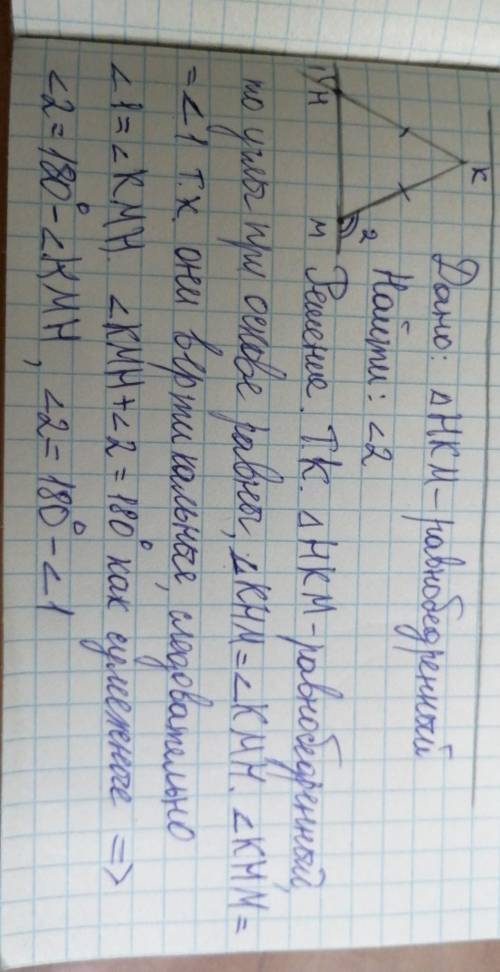 Дано: ΔНКМ-равнобедренный
К
Найти: ∠2
2
1
Н
М
Решение. Т.К. ΔНКМ-равнобедренный,
то углы при основе равны, ∠КНМ=∠КМН. ∠КНМ=
=∠1 т.к. они вертикальные, следовательно
∠1=∠КМН. ∠КМН+∠2=180° как сумежные =>
∠2=180°-∠КМН, ∠2=180°-∠1